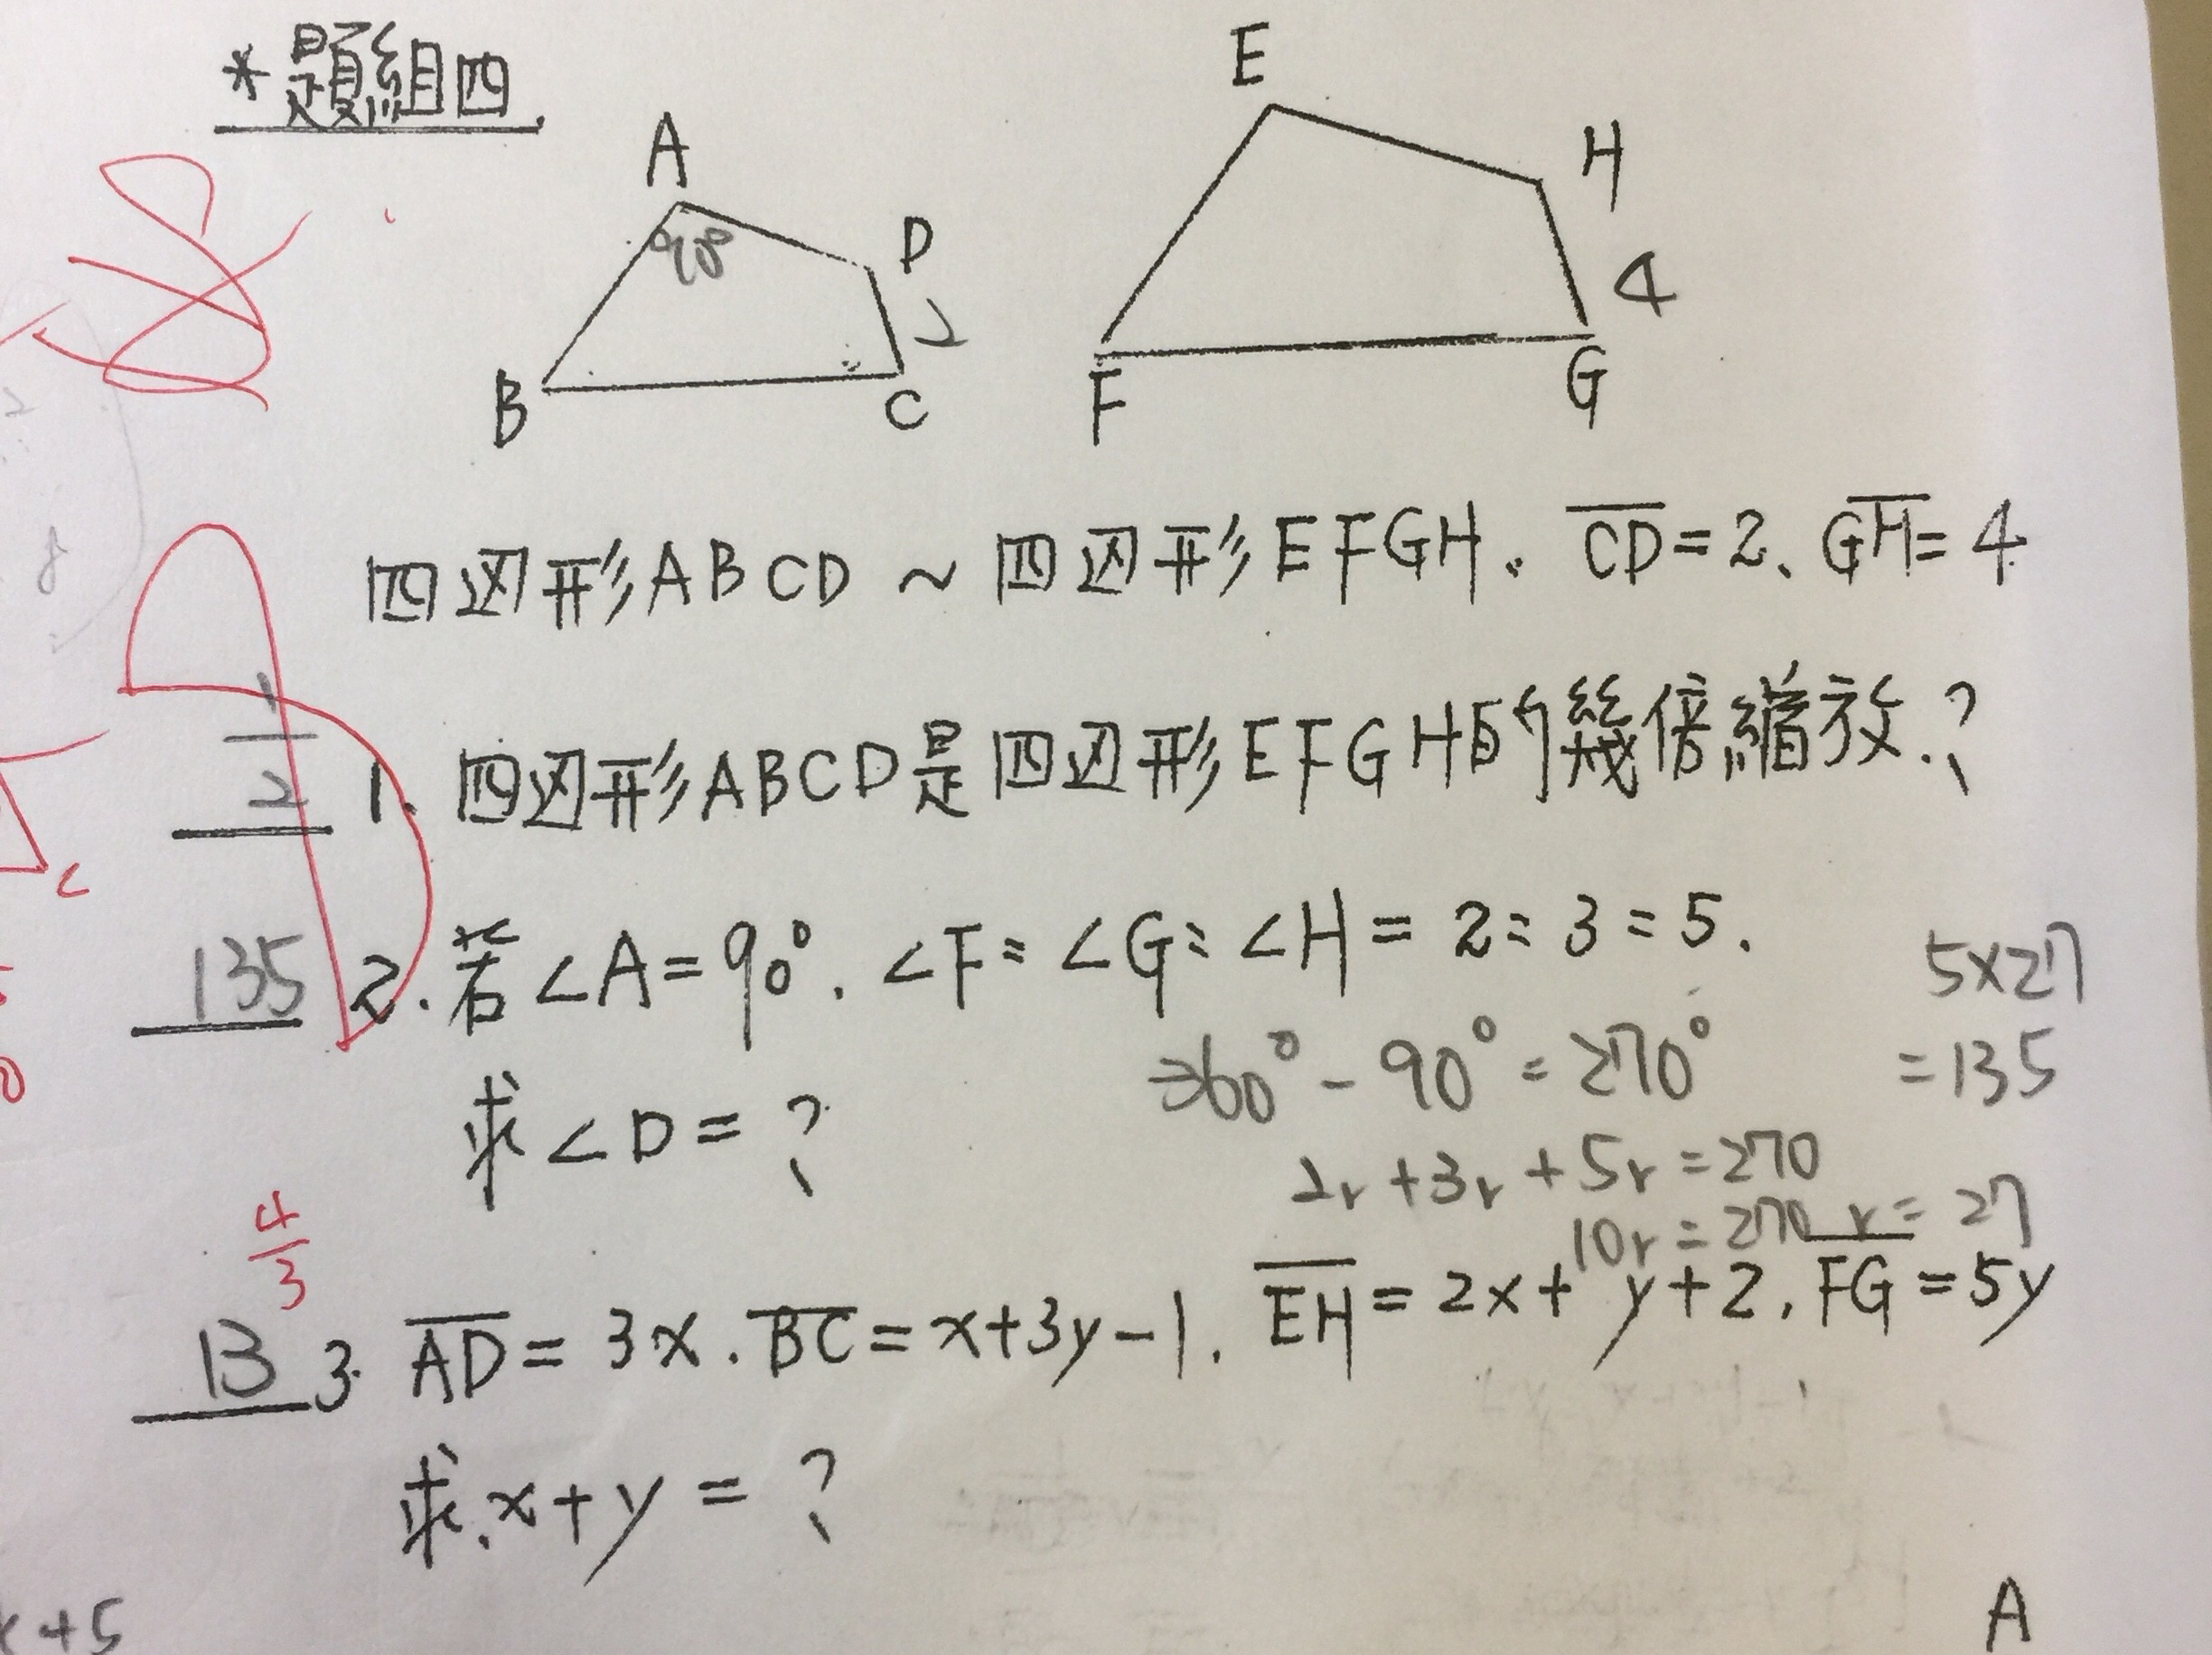 *題組四
E
A
H
98
D
2
4
B
C
F
G
四边形ABCD~四边形EFGH. CD=2、GH=4
1
2
1. 四边形ABCD是四边形EFGH的幾倍縮放.?
135 2. 若∠A=90°. ∠F:∠G:∠H=2:3=5.
5×27
360°-90°=270°
=135
求∠D=?
2r+3r+5r=270
10r=270 r=27
4
3
13 3. AD=3x. BC=x+3y-1. EH=2x+y+2. FG=5y
求.x+y=?
x+5
A
c
8